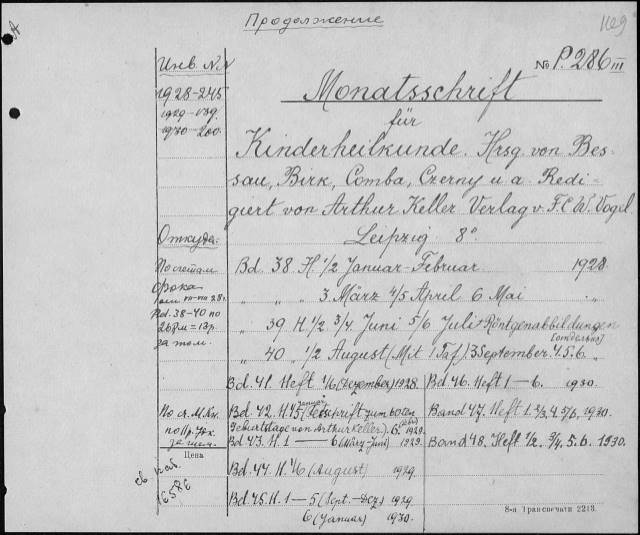 Продолжение
Инв. N.N
1928-245
1929-139
1930-200
№ P.286 III
Monatsschrift
für
Kinderheilkunde. Hrsg. von Bes-
sau, Birk, Comba, Czerny u. a. Redi-
giert von Arthur Keller Verlag v. F.C.W. Vogel
Leipzig 8°
Откуда:
По счетам
Bd. 38-40 по
за том.
Bd. 38. H. 1/2 Januar-Februar 1928
" " " 3. März 4/5 April 6 Mai "
" 39 H. 1/2 3/4 Juni 5/6 Juli + Röntgenabbildungen
(отдельно)
" 40 " 1/2 August (Mit 1 Taf.) 3 September 4.5.6 "
Bd. 41. Heft 1/6 (Dezember) 1928.
Bd. 42. H. 1/5 (Januar Festschrift zum 60ten
Geburtstage von Arthur Keller). 6. 1929.
Bd. 43. H. 1 — 6 (März-Juni) 1929.
Bd. 44. H. 1/6 (August) 1929.
Bd. 45. H. 1 — 5 (Sept. - Dez) 1929
6 (Januar) 1930.
Bd. 46. Heft 1 — 6. 1930.
Band 47. Heft 1. 2/3. 4. 5/6, 1930.
Band 48. Heft 1/2. 3/4. 5. 6. 1930.
Цена
1658 с
8-я Транспечати 2213.